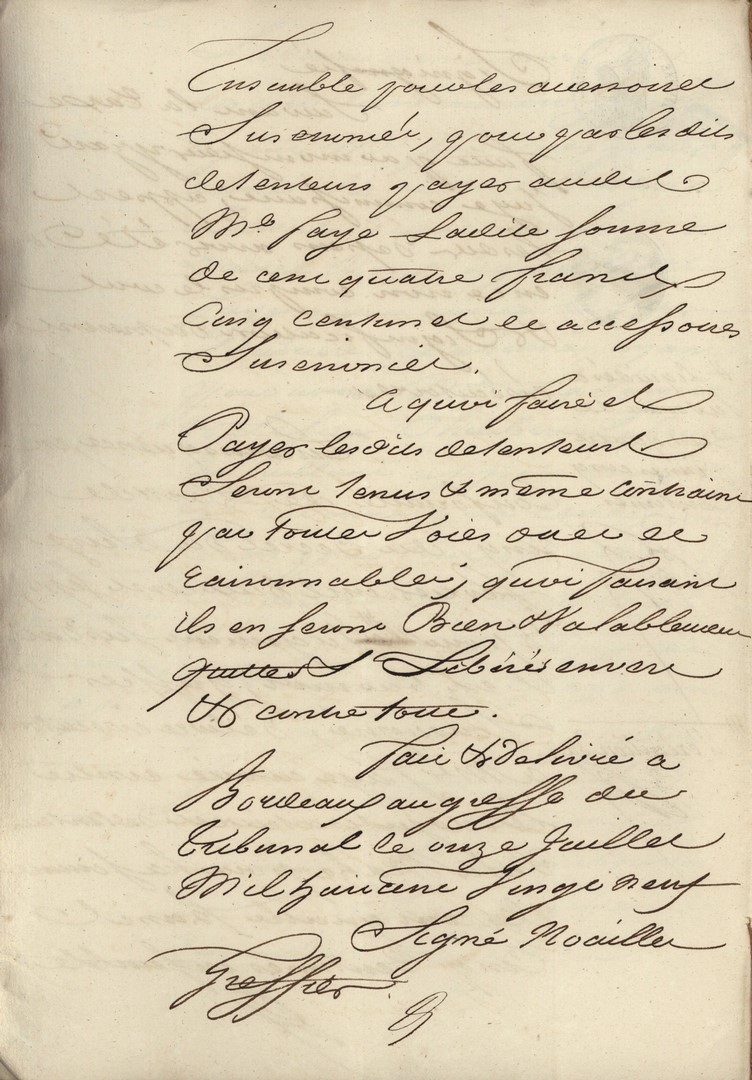 Ensemble pour les accessoires
Susénoncés, pour par lesdits
detenteurs payer audit
Me. Faye Ladite somme
de cent quatre francs
Cinq centimes et accessoires
Susénoncés.
A quoi faire et
Payer lesdits detenteurs
Seront tenus & même contraints
par toutes Voies dues et
raisonnables, quoi faisant
ils en seront Bien & Valablement
quittes & Libérés envers
& contre tous.
fait & Delivré a
Bordeaux au greffe du
tribunal le onze Juillet
Mil huit cent Vingt neuf
Signé Noailles
Greffier